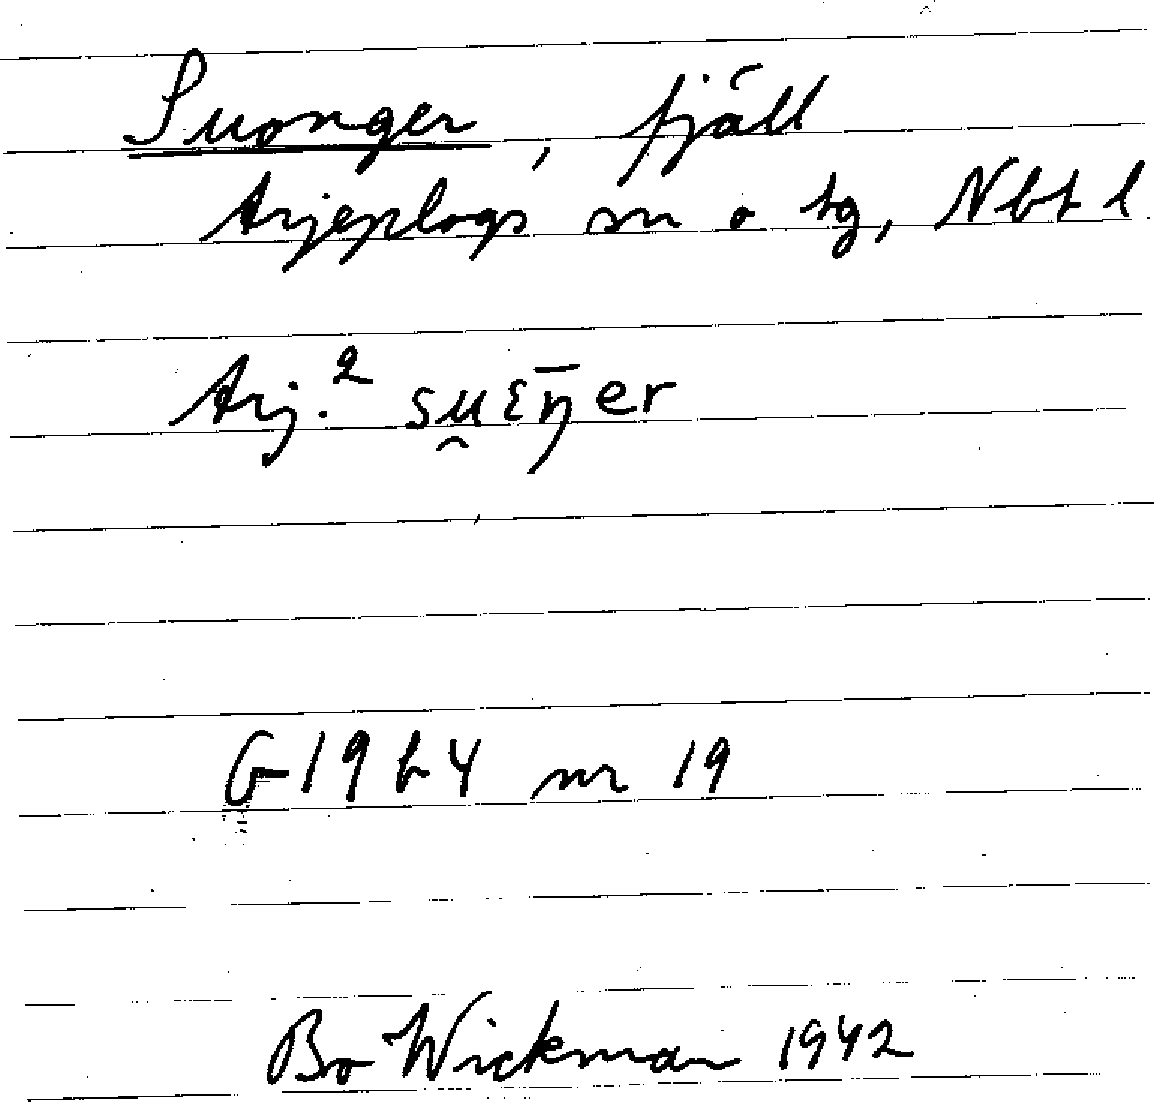 Suonger, fjäll
Arjeplogs sn o tg, Nbt l
Arj.² su̯ɛŋ̄er
G 19 b 4 nr 19
Bo Wickman 1942